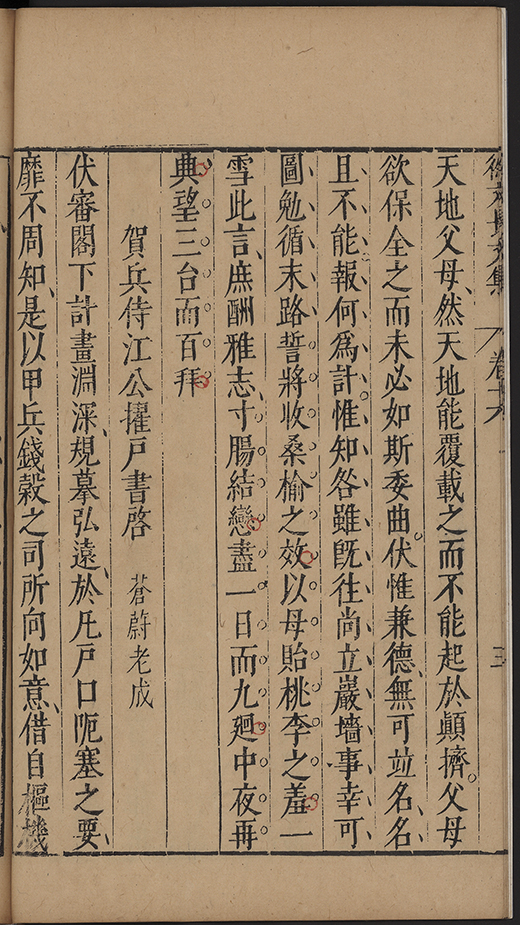 徐文長文集 卷十六 三
天地父母、然天地能覆載之而不能起於顛擠。父母
欲保全之而未必如斯委曲。伏惟兼德、無可竝名、名
且不能報何爲計。惟知咎雖旣往尚立巖墻事幸可
圖勉循末路誓將收桑榆之效以毋貽桃李之羞一
雪此言、庶酬雅志、寸腸結戀盡一日而九廻中夜再
典望三台而百拜
賀兵侍江公擢戶書啓 蒼蔚老成
伏審閣下計畫淵深、規摹弘遠、於凡戶口阨塞之要、
靡不周知、是以甲兵錢穀之司所向如意、借自樞機